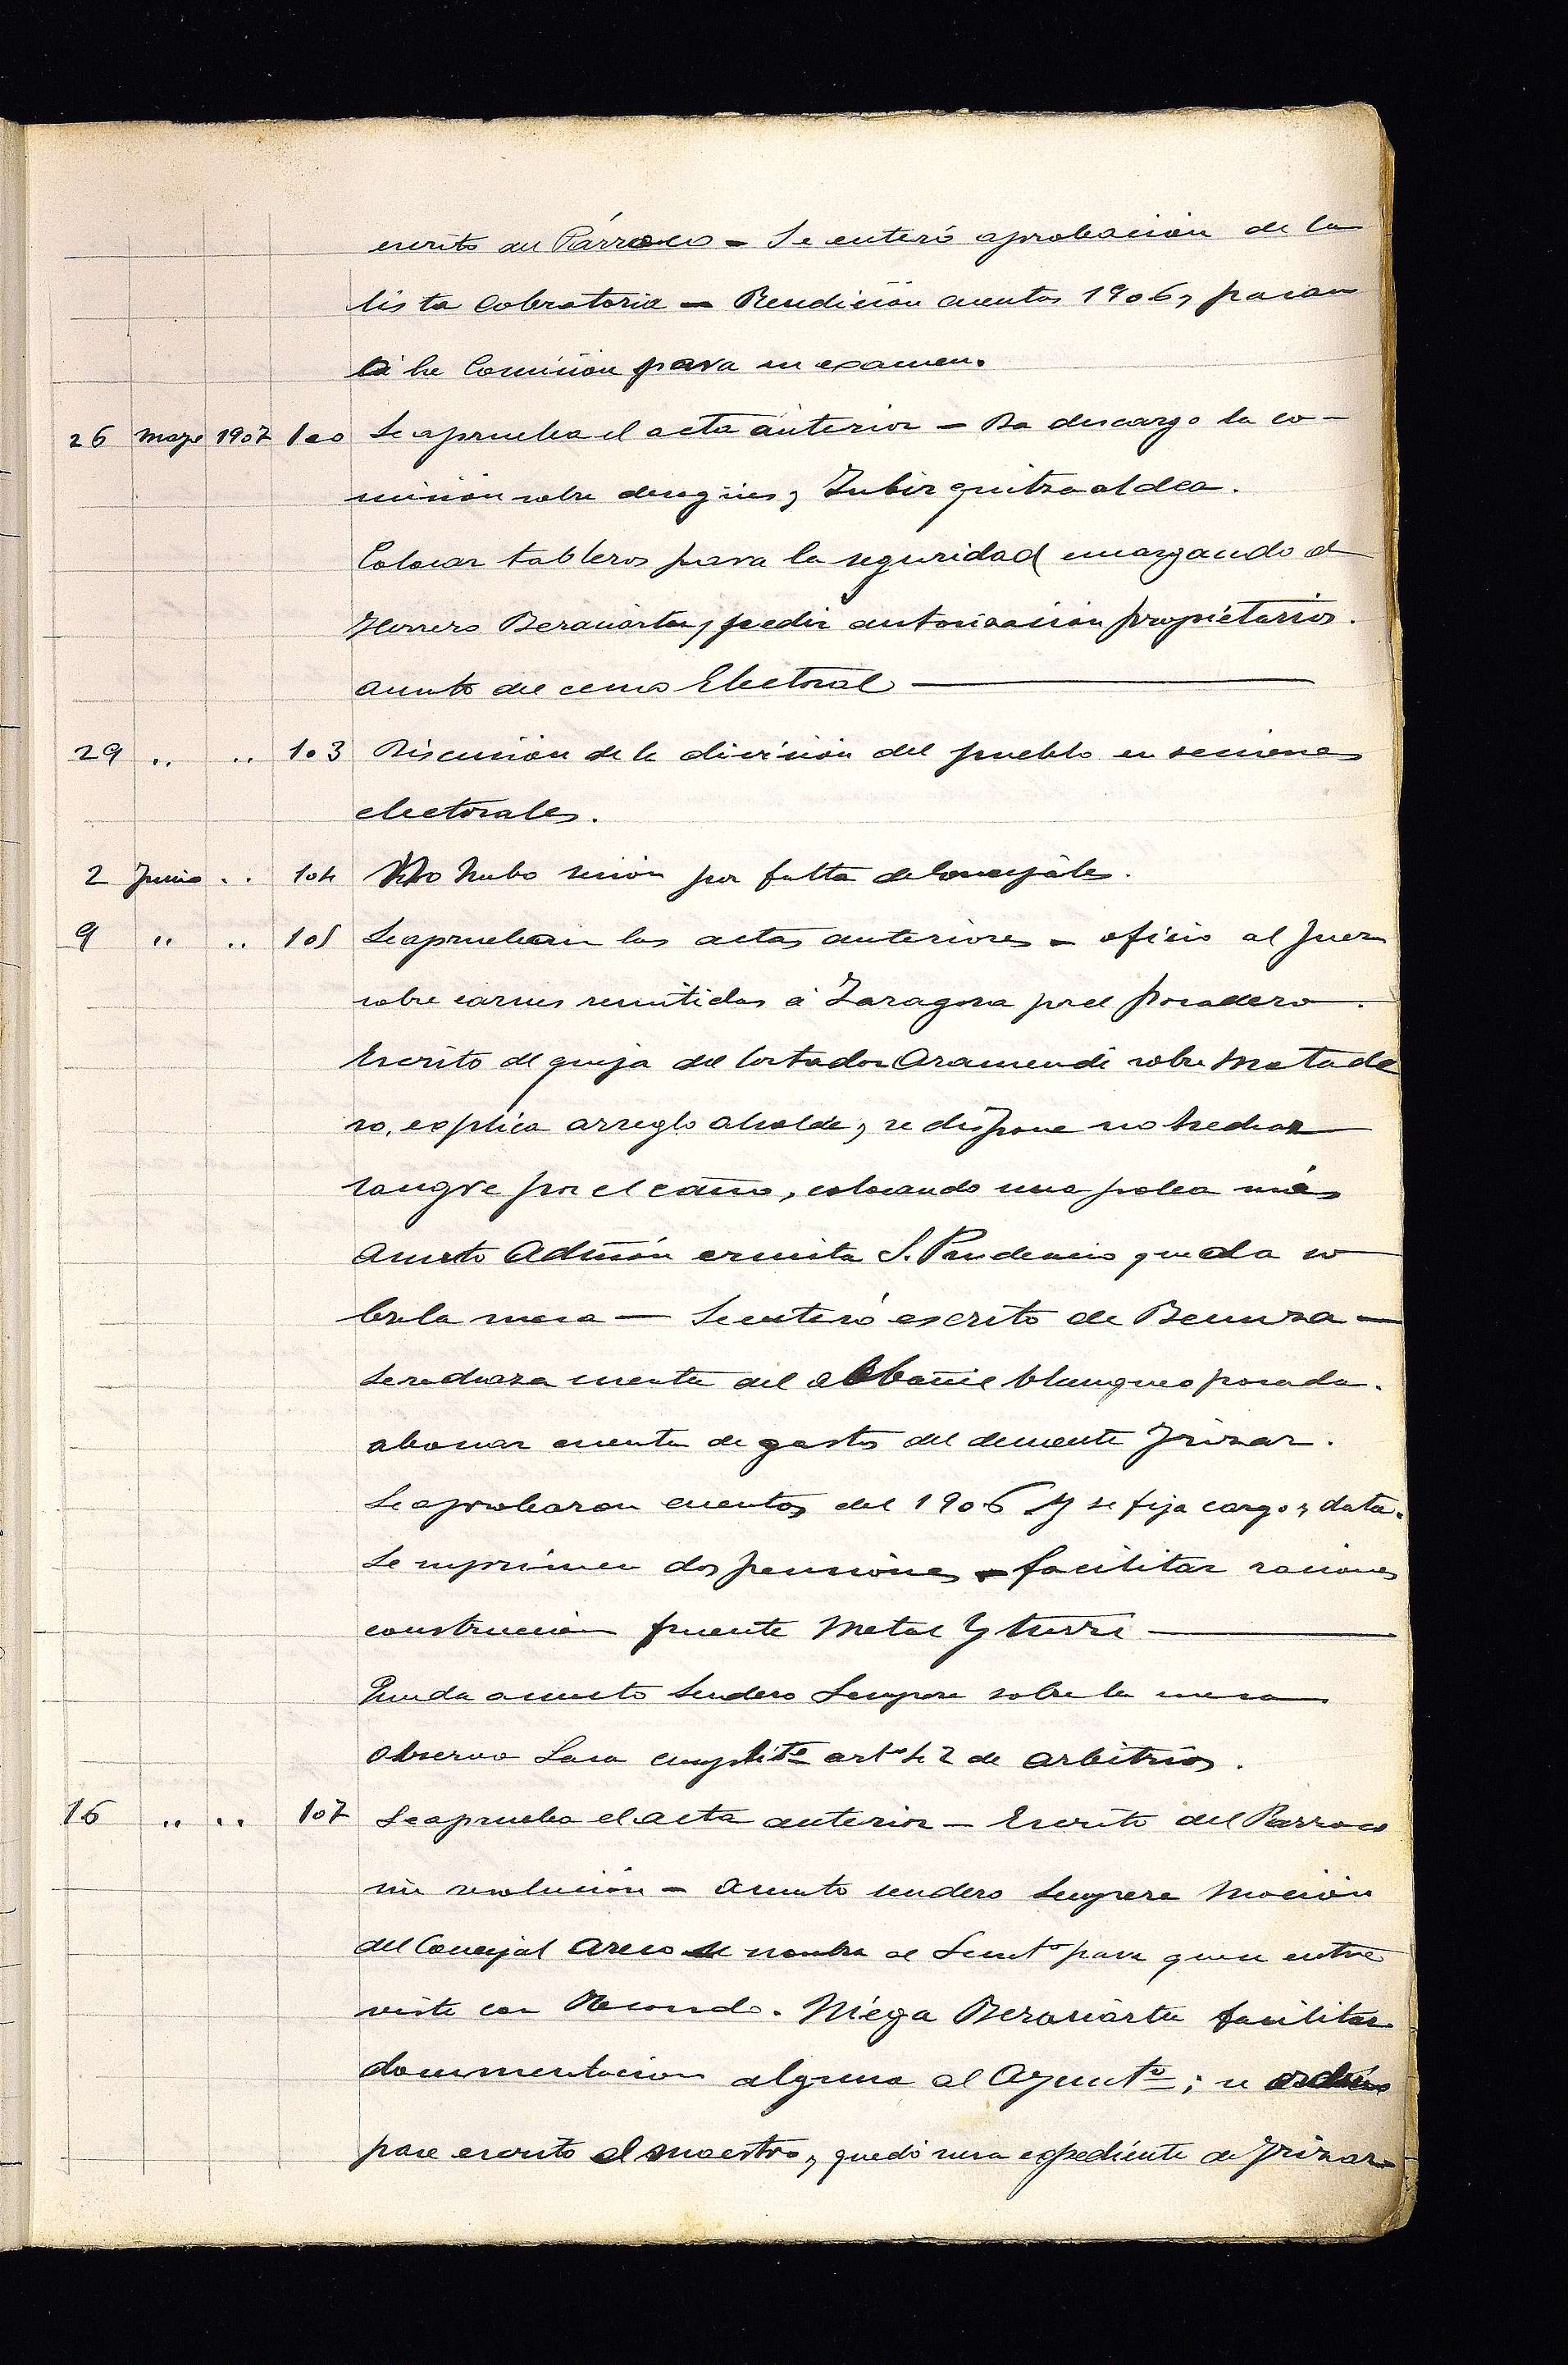 escrito del Párroco - Se enteró aprobación de la
lista cobratoria - Rendición cuentas 1906, pasan
á la Comisión para su examen.
26 Mayo 1907 100 Se aprueba el acta anterior - Da descargo la co-
misión sobre desagües, Zubizguitzaaldea.
Colocar tableros para la seguridad encargando al
Herrero Berasiartu, pedir autorización propietarios.
asunto del censo Electoral
29 .. .. 103 Discusión de la división del pueblo en secciones
electorales.
2 Junio .. 104 No hubo sesión por falta de Concejales.
9 .. .. 105 Se aprueban las actas anteriores - oficio al Juez
sobre carnes remitidas á Zaragoza por el posadero.
Escrito de queja del Cortador Aramendi sobre Matade
ro, explica arreglo alcalde, se dispone no hechar
sangre por el caño, colocando una polea más
Asunto Admón ermita S. Prudencio queda so
bre la mesa - Se enteró escrito de Beunza -
Se rechaza cuenta del albañil blanqueo posada.
abonar cuenta de gastos del demente Irizar.
Se aprobaron cuentas del 1906 y se fija cargo y data.
Se suprimen dos pensiones - facilitar raciones
construcción puente Metal Yturri
Queda asunto Sendero Sempere sobre la mesa
Observa Lasa cumplitº artº 42 de arbitrios.
16 .. .. 107 Se aprueba el acta anterior - Escrito del Parroco
sin resolución - Asunto sendero Sempere Moción
del Concejal Areso se nombra al para que se entre
viste con Recondo. Niega Berasiartu facilitar
documentacion alguna al Ayuntº; se ordenó
pase escrito al maestro, quedó sura expediente de Irizar